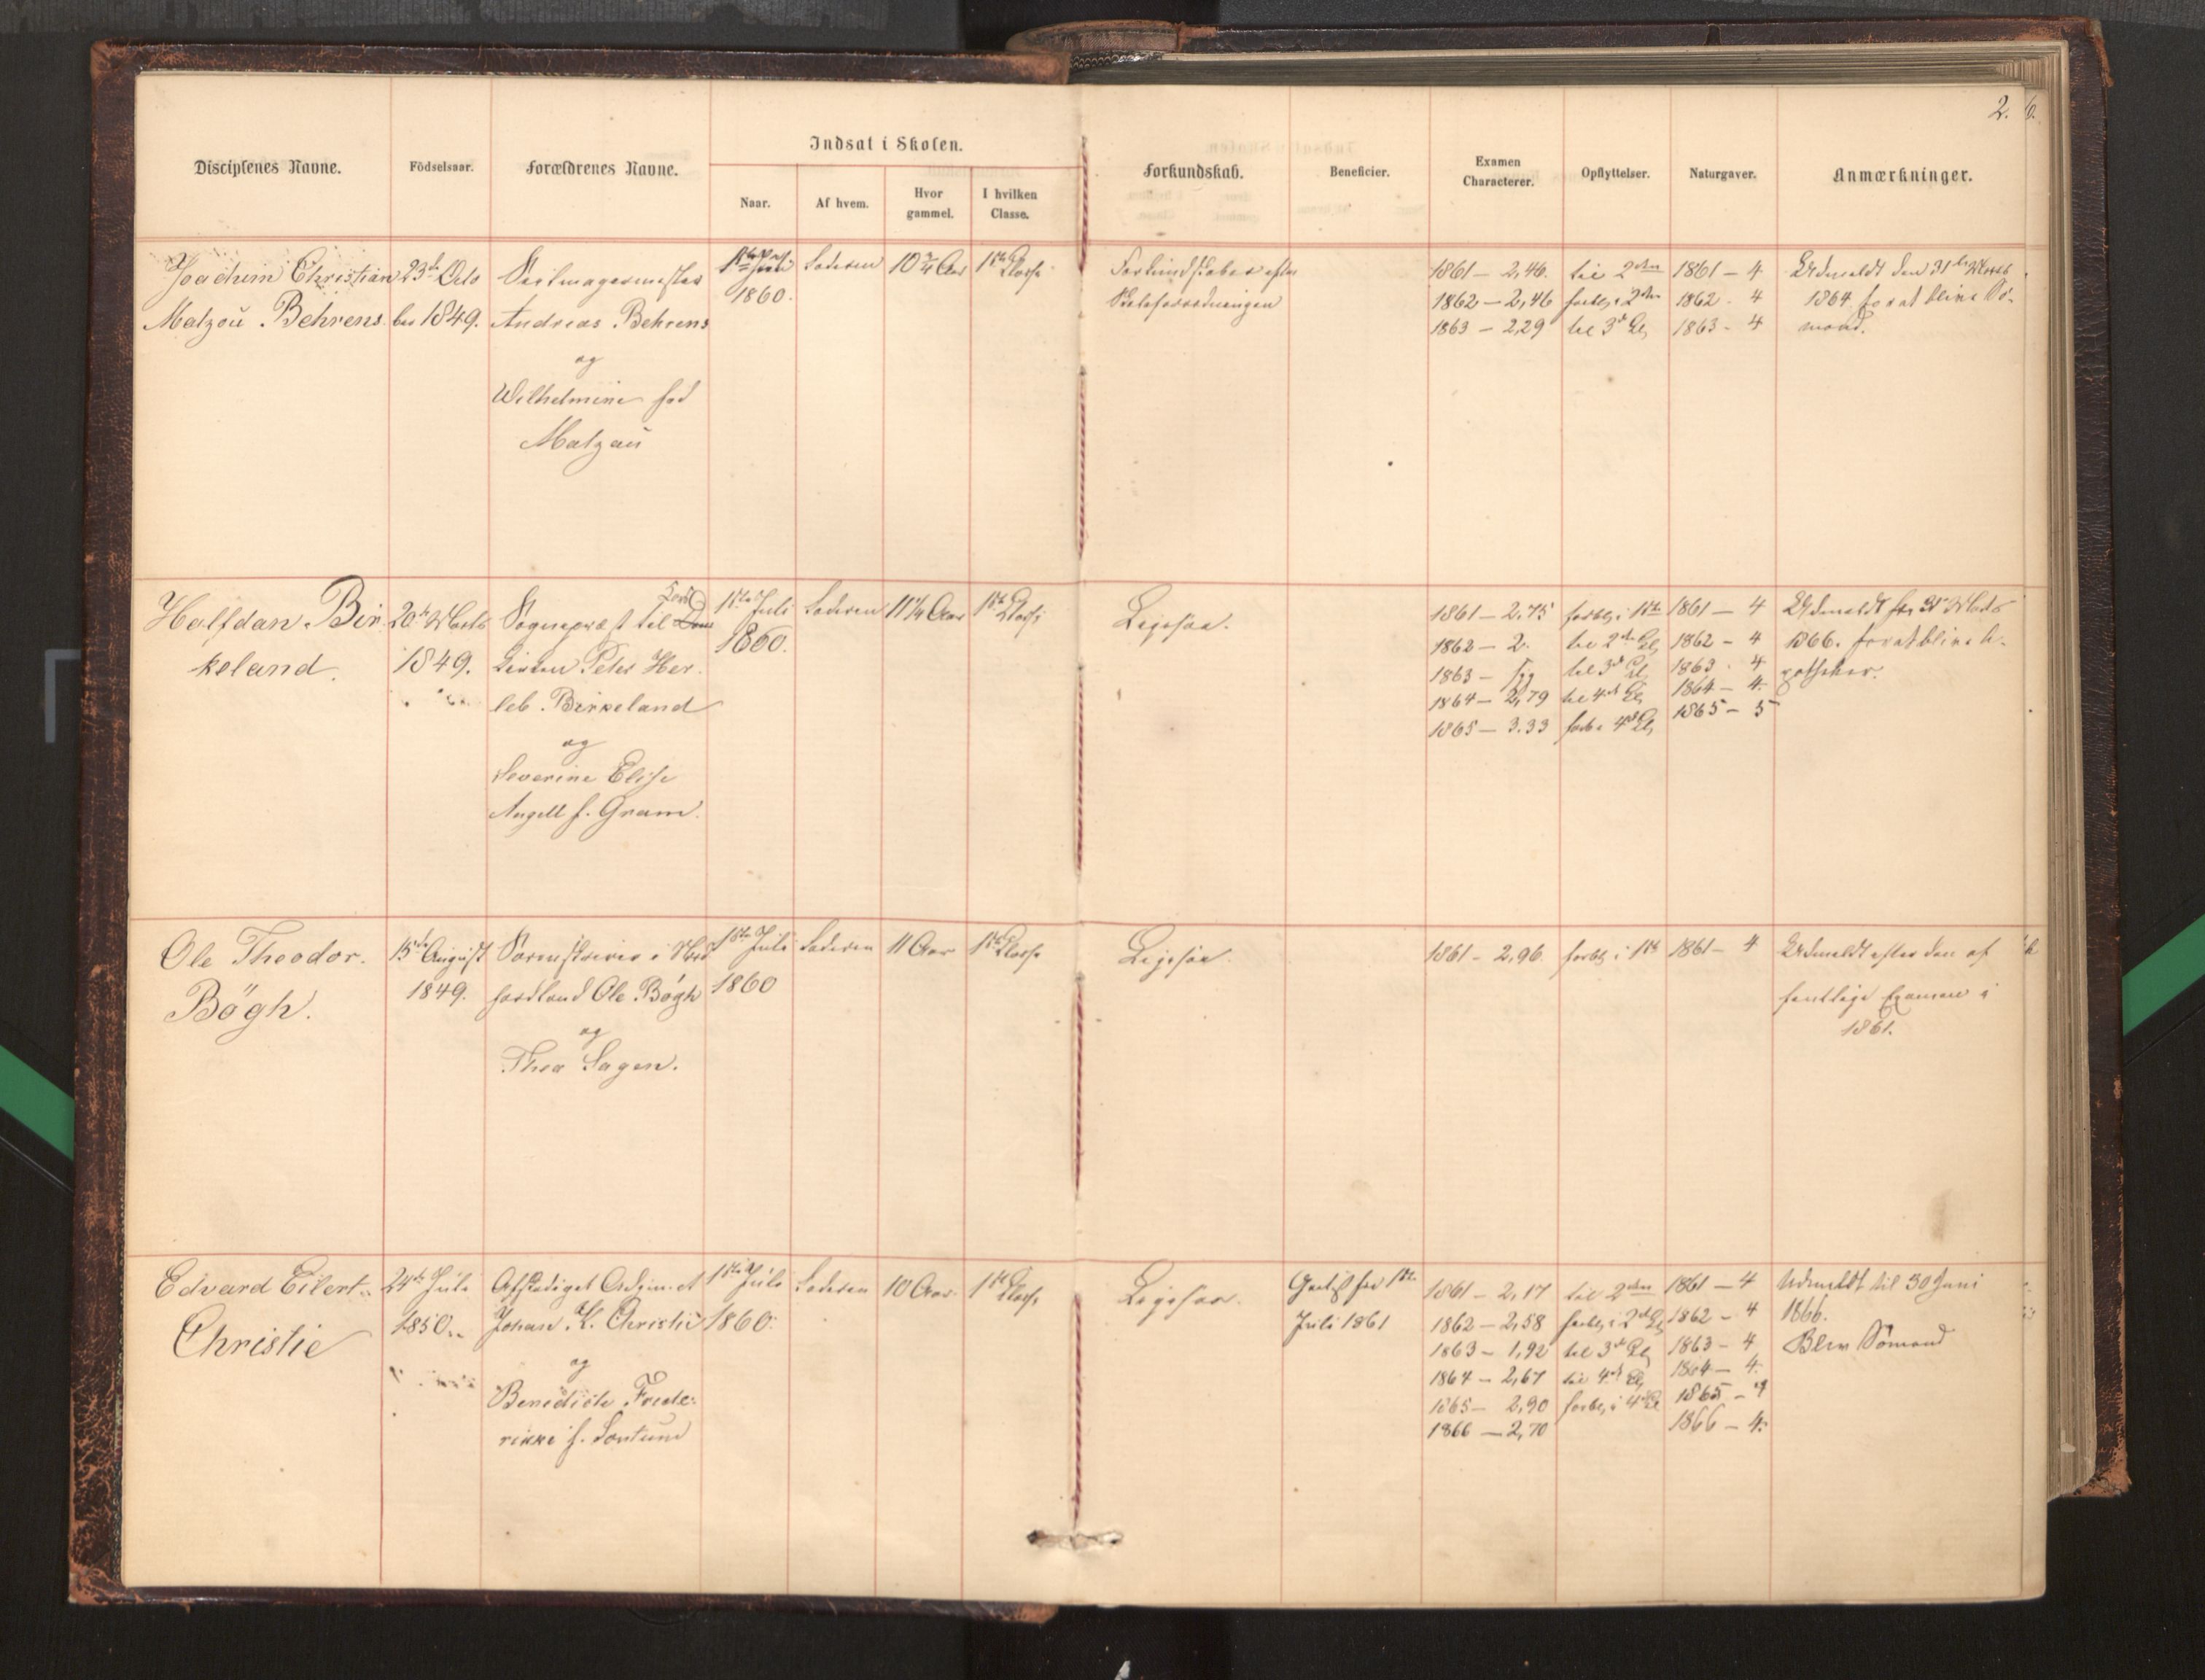 2.
Disciplenes Navne.
Födselsaar.
Forældrenes Navne.
Indsat i Skolen.
Naar.
Af hvem.
Hvor
gammel.
I hvilken
Classe.
Forkundskab.
Beneficier.
Examen
Characterer.
Opflyttelser.
Naturgaver.
Anmærkninger.
Joachim Christian
Matzou Behrens.
23de Octo
ber 1849.
Seilmagermester
Andreas Behrens
og
Wilhelmine fød
Matzau
1ste Juli
1860.
Faderen
10 3/4 Aar
1ste Classe
Forkundskaber efter
Skoleforordningen
1861 – 2,46.
1862 – 2,46
1863 – 2,29
til 2den
forbl. i 2den
til 3die Cl.
1861 – 4
1862 – 4
1863 – 4
Udmeldt den 31te Marts
1864 for at blive Sø-
mand.
Halfdan Bir
keland.
20de Marts
1849.
Sognepræst til
Peter Her-
leb Birkeland
og
Severine Elise
Angell f. Gram.
1ste Juli
1860.
Faderen
11 1/4 Aar
1ste Classe
Ligesaa.
1861 – 2,75
1862 – 2.
1863 –
1864 – 2,79
1865 – 3.33
forbl. i 1ste
til 2den Cl.
til 3die Cl.
til 4de Cl.
forb. i 4de Cl.
1861 – 4
1862 – 4
1863 – 4
1864 – 4.
1865 – 5
Udmeldt 31 Marts
1866. for at blive A-
potheker.
Ole Theodor.
Bögh.
15de August
1849.
Sorenskriver i Nord
fjordland Ole Bögh
og
Thea Sagen.
1ste Juli
1860
Faderen
11 Aar
1ste Classe
Ligesaa.
1861 – 2,96.
forbl. i 1ste
1861 – 4
Udmeldt efter den of
fentlige Examen i
1861.
Edvard Eilert
Christie
24de Juli
1850.
Afskediget
Johan K. Christie
og
Benedicte Frede-
rikke f.
1ste Juli
1860.
Faderen
10 Aar.
1ste Classe
Ligesaa.
Gratist fra 1ste
Juli 1861
1861 – 2,17
1862 – 2,58
1863 – 1,92
1864 – 2,67
1865 – 2,90
1866 – 2,70
til 2den
forbl. i 2den Cl.
til 3die Cl.
til 4de Cl.
forbl. i 4de Cl.
1861 – 4
1862 – 4
1863 – 4
1864 – 4.
1865 – 4
1866 – 4.
Udmeldt til 30 Juni
1866.
Blev Sömand